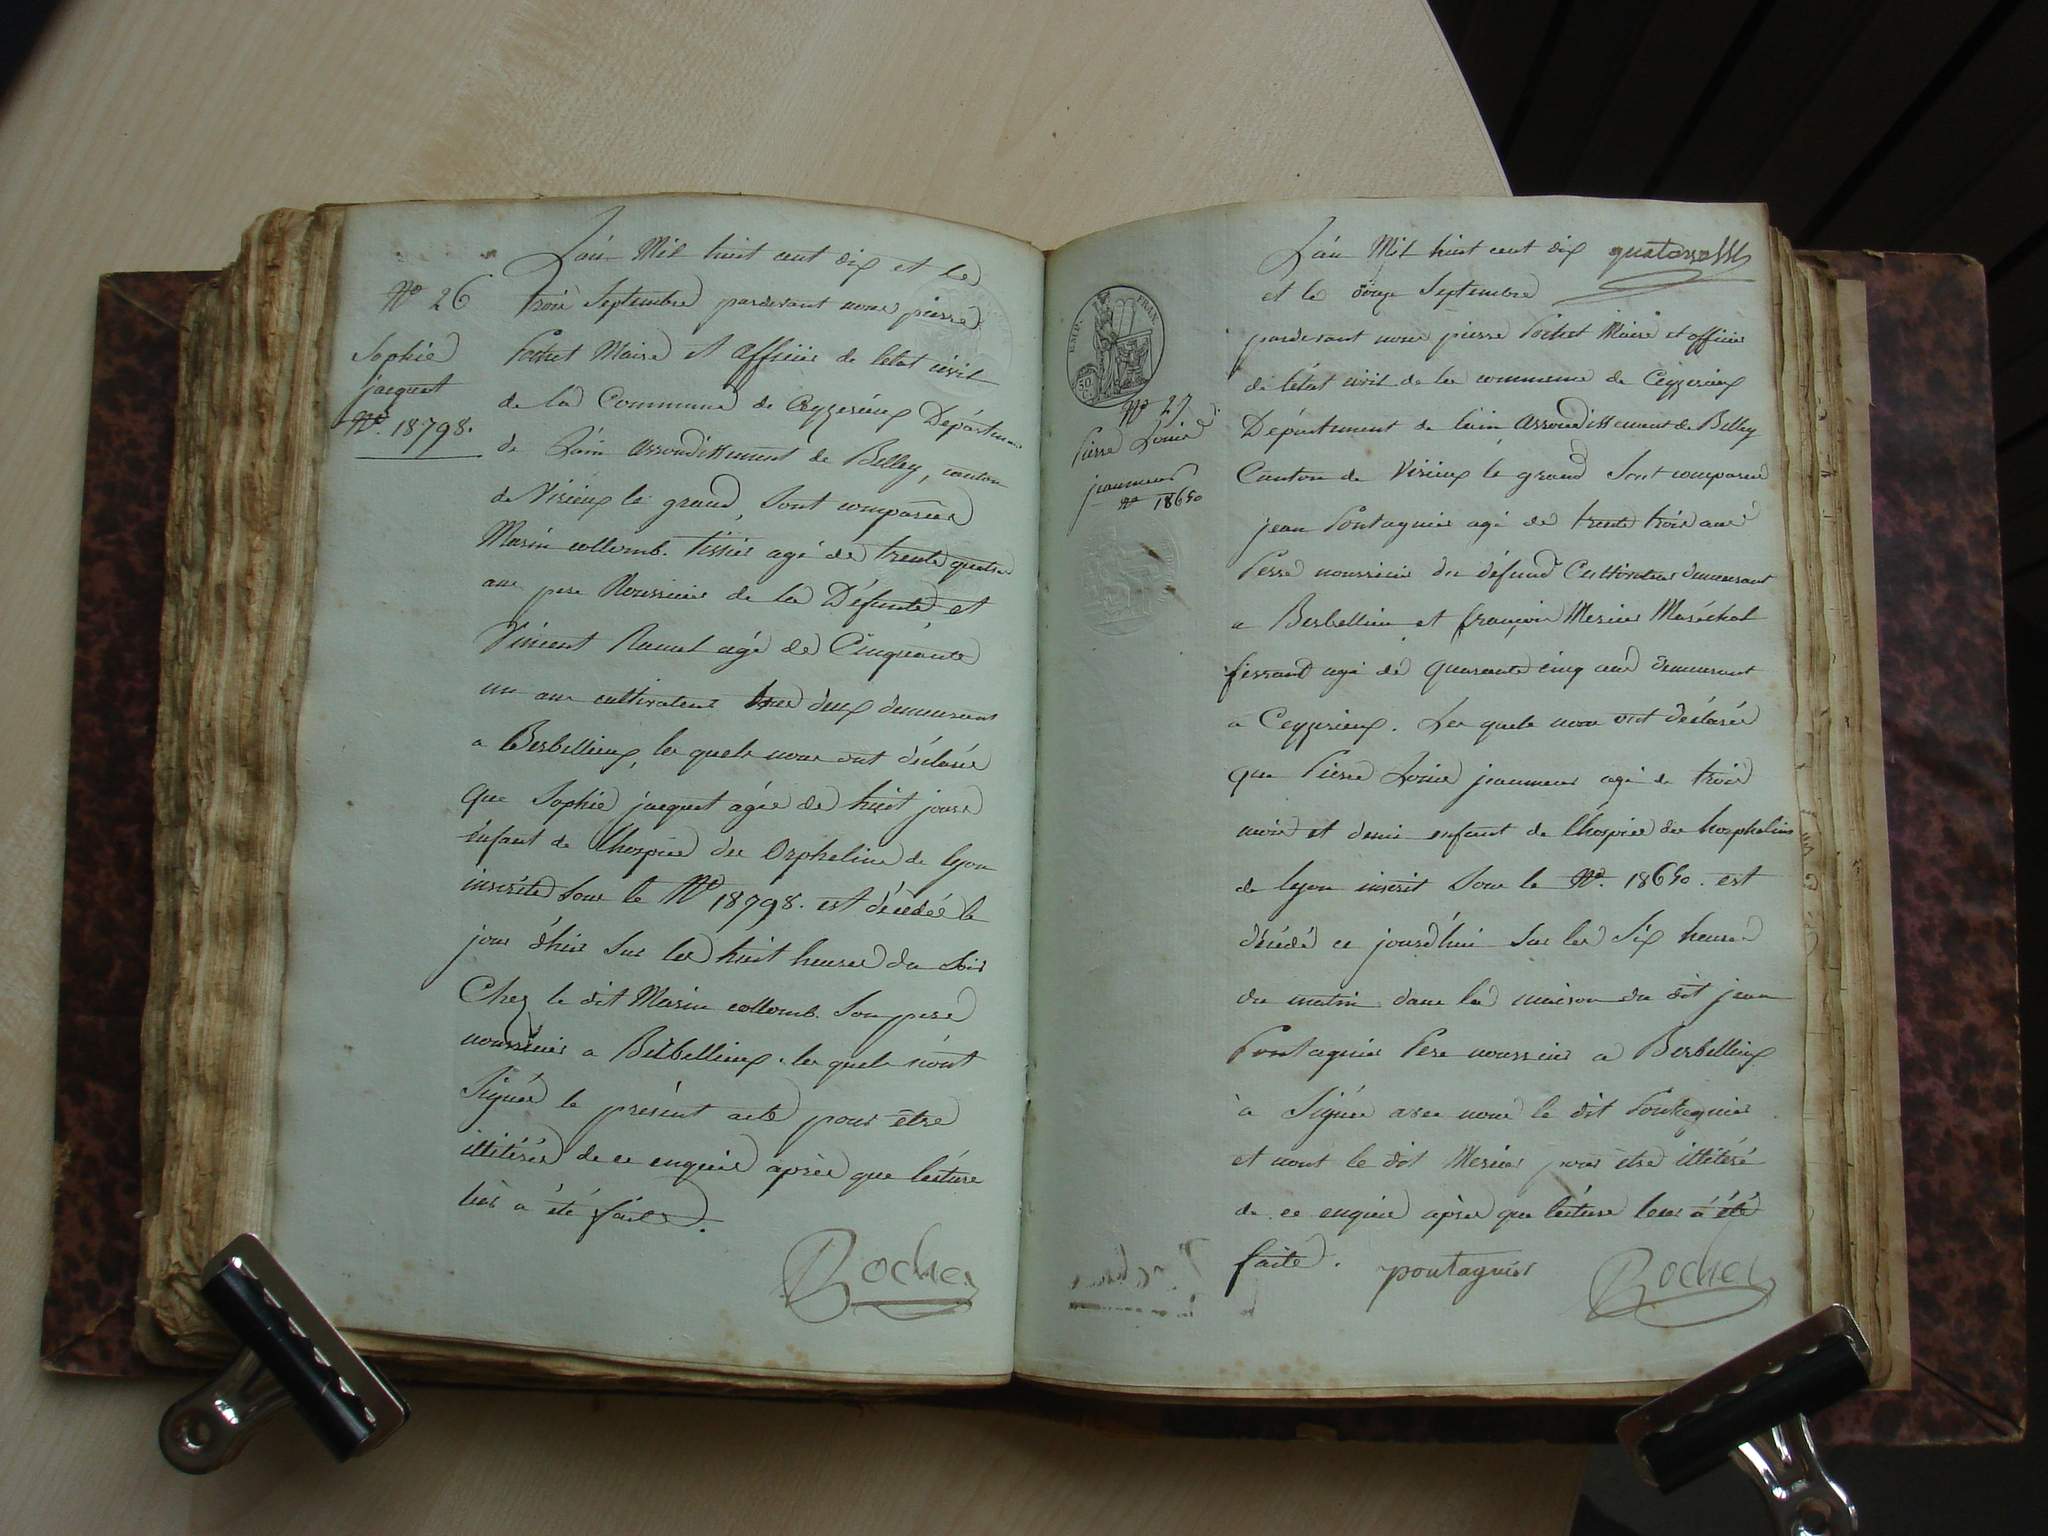 L'an Mil huit cent dix et le
trois Septembre pardevant nous pierre
Pochet Maire et officier de l'état civil
de la Commune de Ceyzerieux Départem
de L'ain arrondissement de Belley, canton
de Virieux le grand, Sont comparus
Marin collomb. tissier agé de trente quatre
ans pere Nourricier de la Défunte et
Vincent Ramel agé de Cinquante
un ans cultivateur tous deux demeurant
a Berbellieux, les quels nous ont déclarés
que Sophie jacquet agée de huit jours
enfant de l'hospice des Orphelins de lyon
inscrite Sous le No 18798. est décédée le
jour d'hier sur les huit heures du Soir
Chez le dit Marin collomb. Son pere
nourricier a Berbellieux. les quels n'ont
Signés le présent acte pour être
illitérés de ce enquis après que lecture
leur a été faite.
No 26
Sophie
jacquet
No. 18798.
Rochet
L'an Mil huit cent dix
et le douze Septembre
pardevant nous pierre Pochet Maire et officier
de l'état civil de la commune de Ceyzerieux
Département de l'ain arrondissement de Belley
Canton de Virieux le grand Sont comparus
jean Pontagnier agé de trente trois ans
Pere nourricier du défunt Cultivateur demeurant
a Berbellieu et françois Mercier Maréchal
ferrant agé de quarante cinq ans demeurant
a Ceyzerieux. Les quels nous ont déclarés
que Pierre Louis jeaumeur agé de trois
mois et demi enfant de l'hospice des horphelins
de lyon inscrit Sous le No. 18650. est
décédé ce jourd'hui sur les Six heures
du matin dans la maison du dit jean
Pontagnier Pere nourricier a Berbellieux
à Signés avec nous le dit Pontagnier
et nont le dit Mercier pour être illitéré
de ce enquis après que lecture leur a été
faite. pontagnier
Rochet
EMP. FRAN.
50
No 27
Pierre Louis
jeaumeur
No 18650